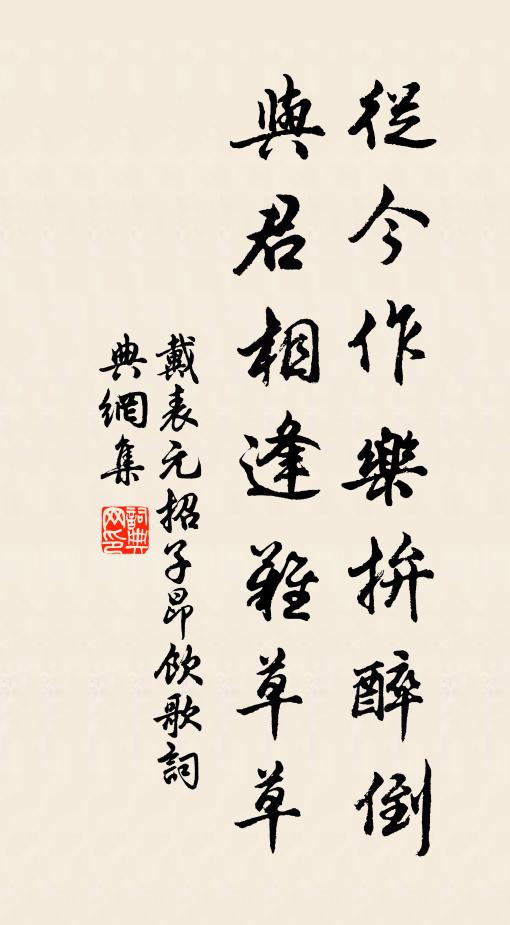 從今作樂拚醉倒
與君相逢難草草
戴表元招子昂飲歌詞
典網集
詞典網印